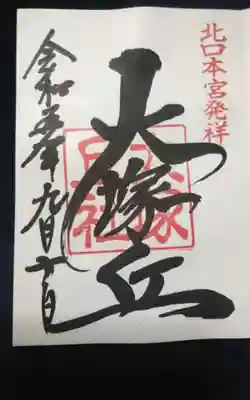 北口本宮発祥
大塚丘
令和五年九月十日